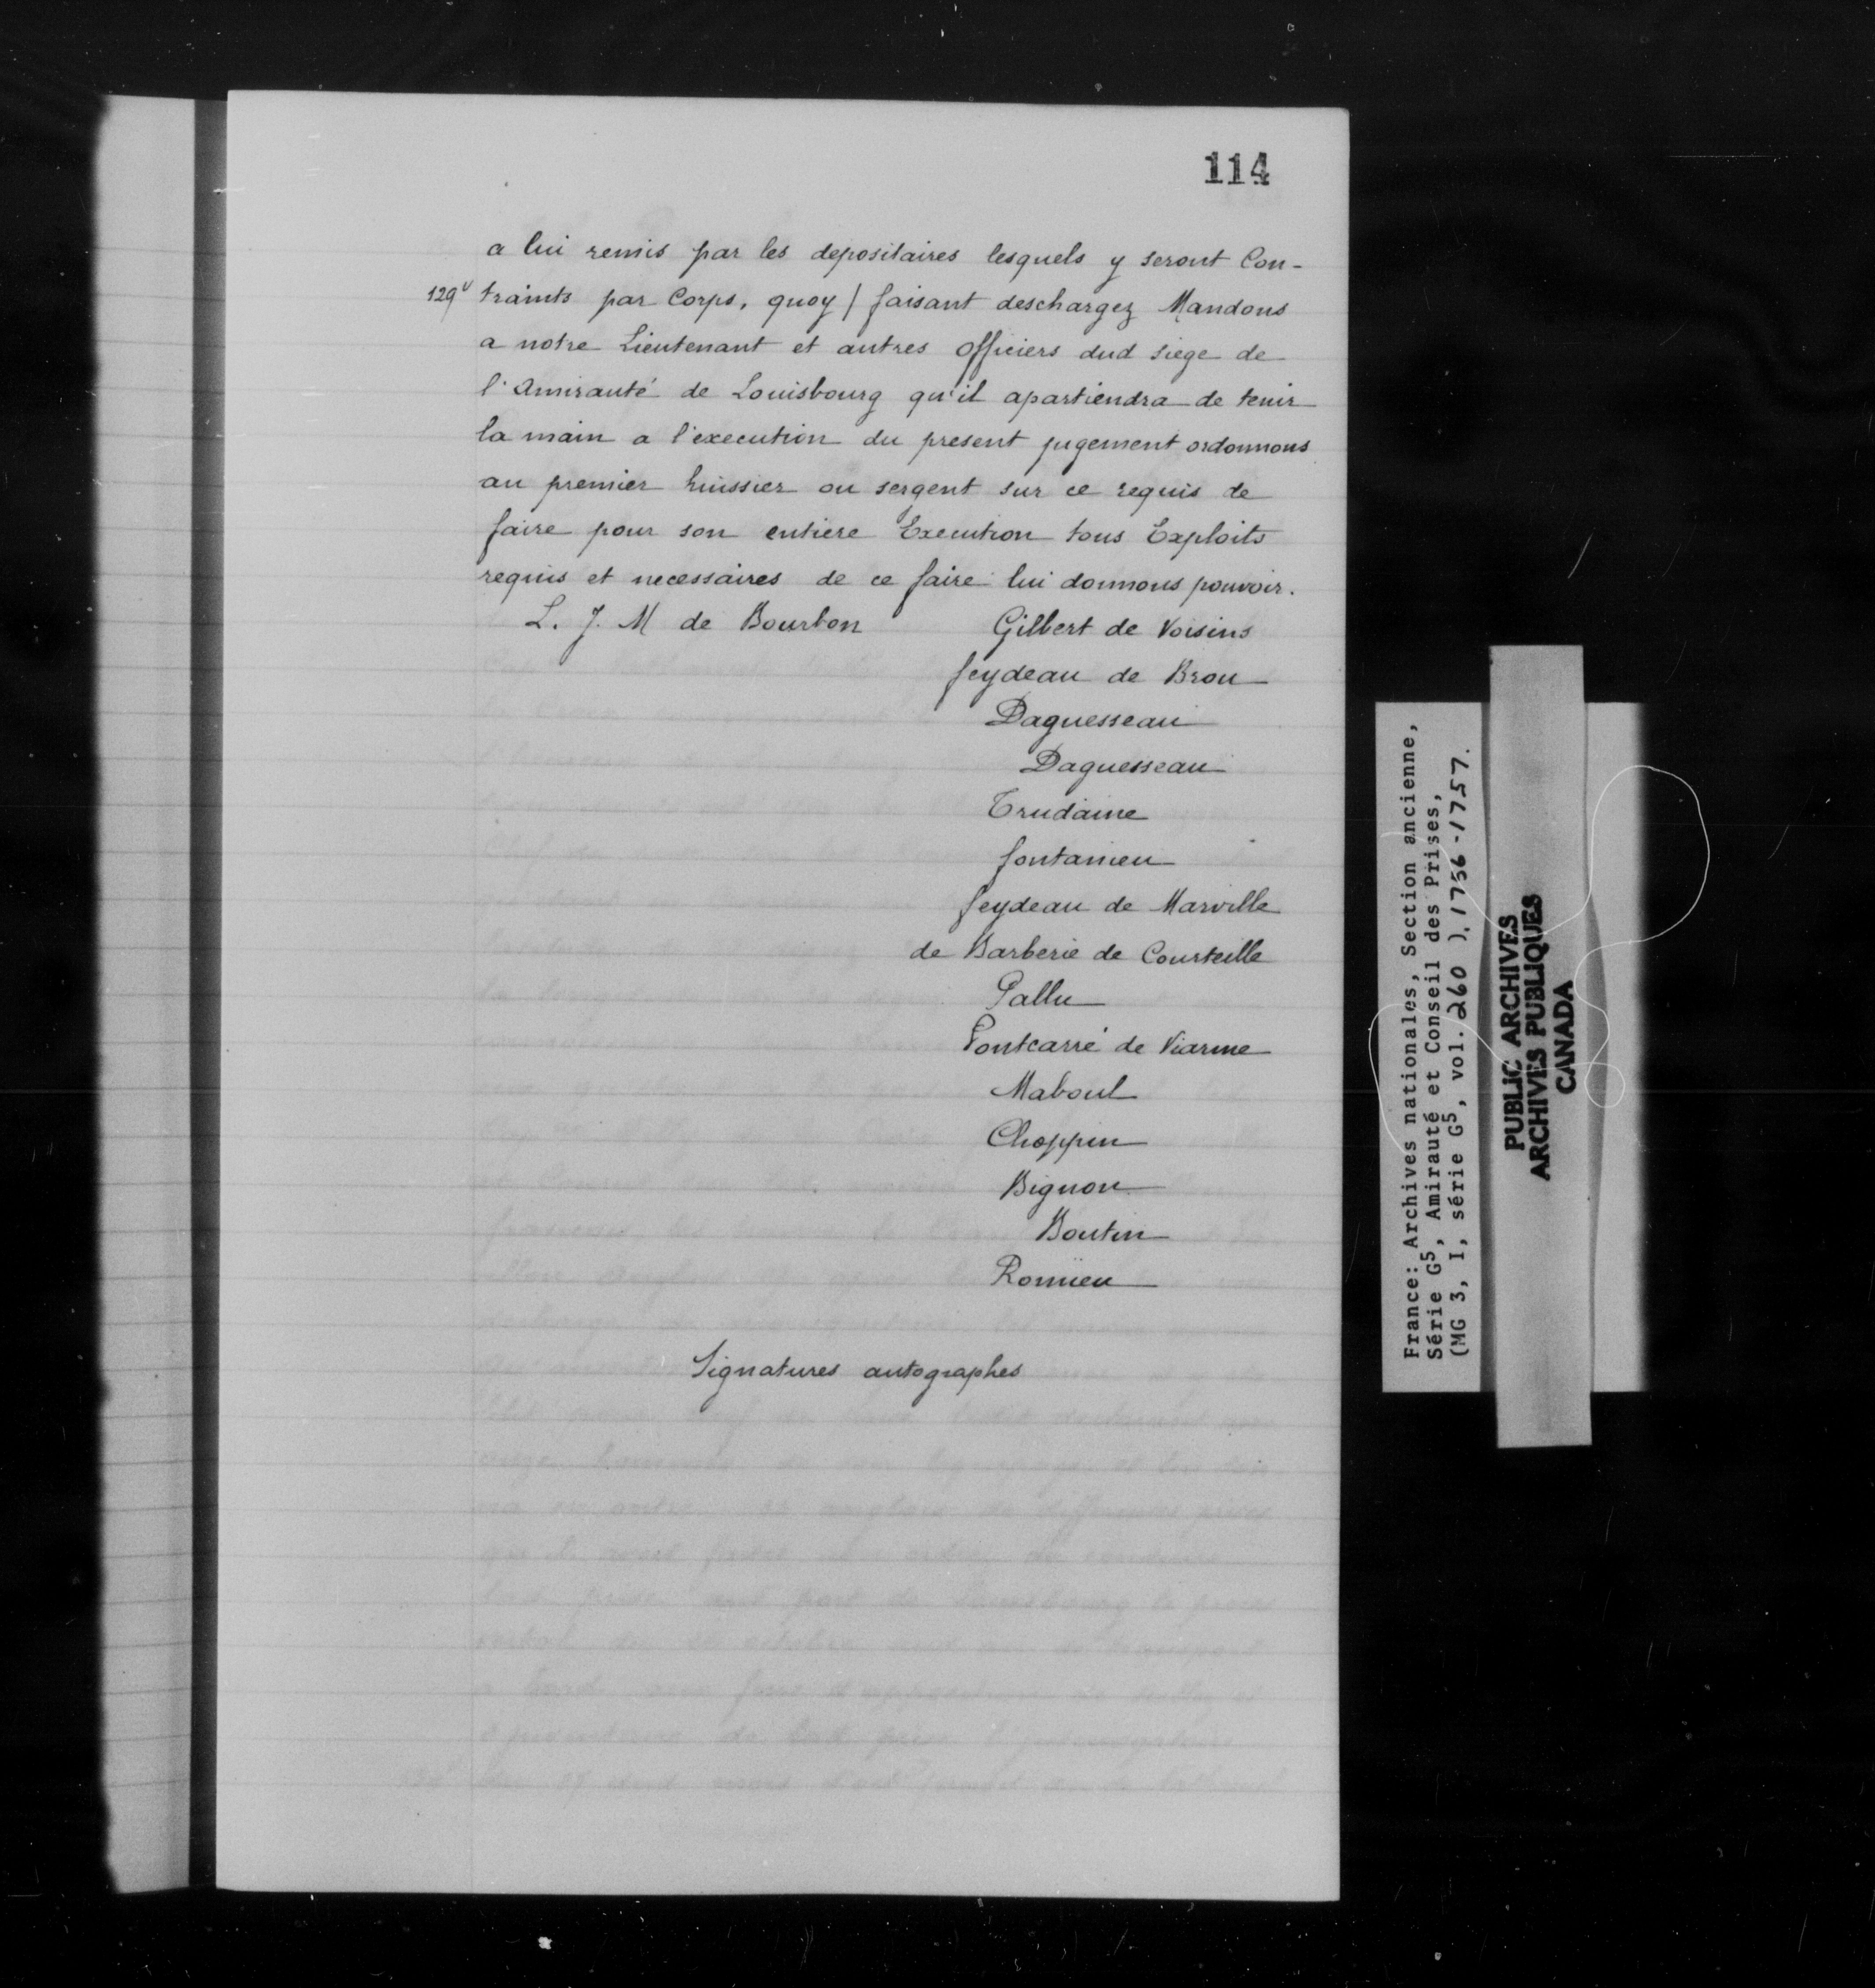 114
a lui remis par les depositaires lesquels y seront Con-
129v traints par Corps, quoy / faisant deschargez Mandons
a notre Lieutenant et autres officiers dud siege de
l'Amirauté de Louisbourg qu'il apartiendra de tenir
la main a l'execution du present jugement ordonnons
au premier huissier ou sergent sur ce requis de
faire pour son entiere Execution tous Exploits
requis et necessaires de ce faire lui donnons pouvoir.
L. J. M de Bourbon Gilbert de Voisins
feydeau de Brou
Daguesseau
Daguesseau
Trudaine
fontanieu
feydeau de Marville
de Barberie de Courteille
Pallu
Pontcarré de Viarme
Maboul
Choppin
Bignon
Boutin
Romieu
Signatures autographes
France: Archives nationales, Section ancienne,
Série G5, Amirauté et Conseil des Prises,
(MG 3, I, série G5, vol. 260 ), 1756-1757.
PUBLIC ARCHIVES
ARCHIVES PUBLIQUES
CANADA